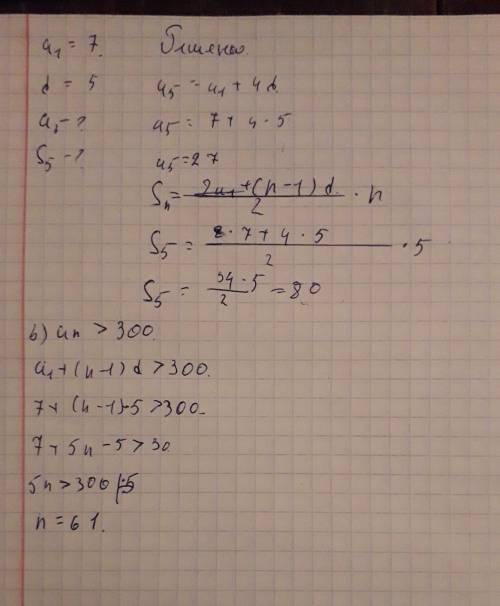 a₁ = 7. Решение.
d = 5 a₅ = a₁ + 4d.
a₅ - ? a₅ = 7 + 4 · 5
S₅ - ? a₅ = 27
Sₙ = (2a₁ + (n - 1) d.)/2 · n
S₅ = (2 · 7 + 4 · 5)/2 · 5
S₅ = (34 · 5)/2 = 80
b) aₙ > 300.
a₁ + (n - 1) d > 300.
7 + (n - 1) · 5 > 300.
7 + 5n - 5 > 30
5n > 300 | : 5
n = 61.